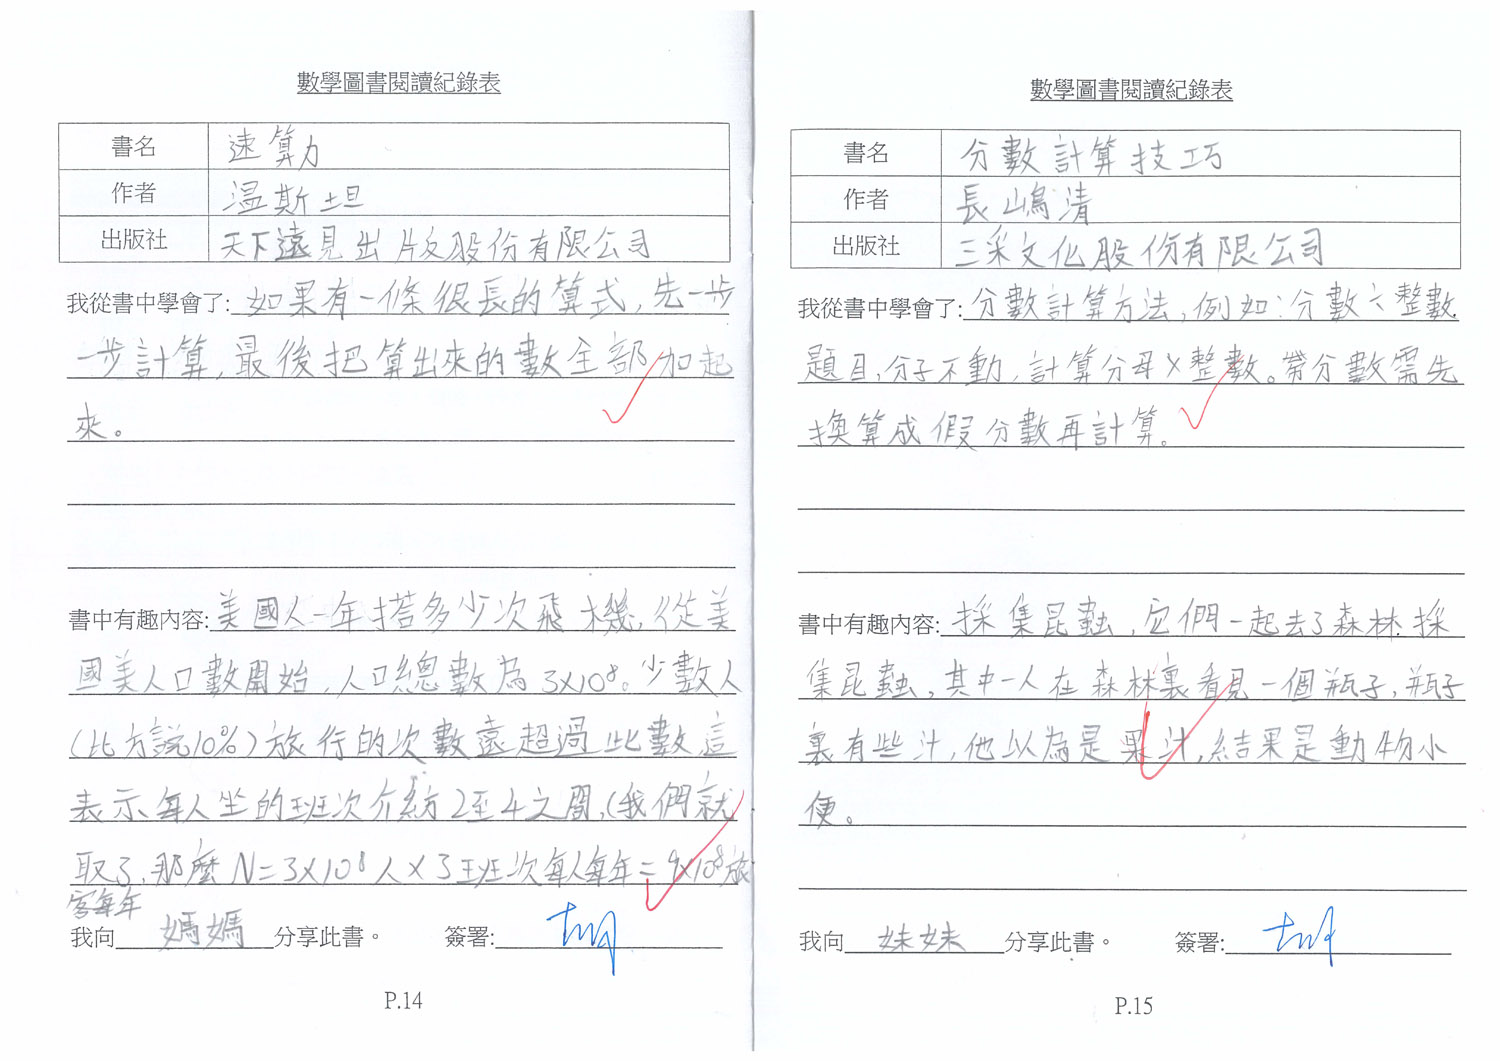 數學圖書閱讀紀錄表
書名 速算力
作者 溫斯坦
出版社 天下遠見出版股份有限公司
我從書中學會了: 如果有一條很長的算式,先一步
一步計算,最後把算出來的數全部加起
來。
書中有趣內容: 美國人一年搭多少次飛機,從美
國美人口數開始,人口總數為3×10⁸。少數人
(比方說10%)旅行的次數遠超過此數這
表示每人坐的班次介紡2至4之間,(我們就
取3,那麼N=3×10⁸人×3班次每人每年=9×10⁸旅
客每年
我向 媽媽 分享此書。 簽署:
P.14
數學圖書閱讀紀錄表
書名 分數計算技巧
作者 長嶋清
出版社 三采文化股份有限公司
我從書中學會了: 分數計算方法,例如:分數÷整數
題目,分子不動,計算分母×整數。帶分數需先
換算成假分數再計算。
書中有趣內容: 採集昆蟲,它們一起去了森林採
集昆蟲,其中一人在森林裏看見一個瓶子,瓶子
裏有些汁,他以為是果汁,結果是動物小
便。
我向 妹妹 分享此書。 簽署:
P.15